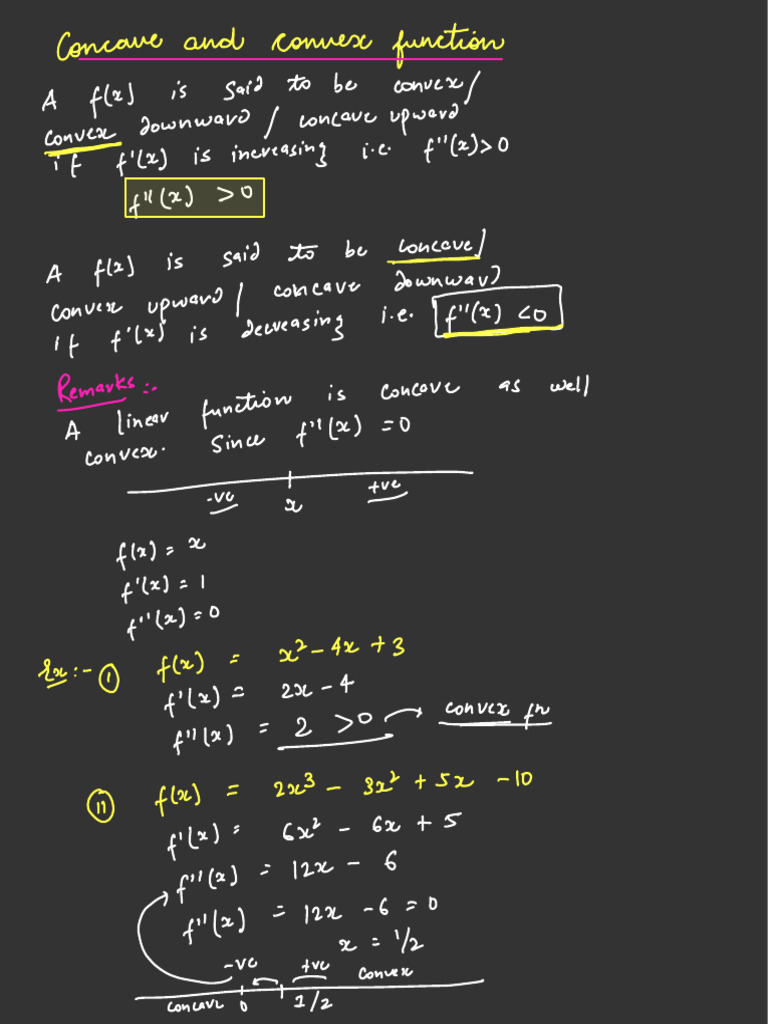 Concave and convex function
A f(x) is said to be convex/
convex downward / concave upward
if f'(x) is increasing i.e. f''(x)>0
f''(x) >0
A f(x) is said to be concave/
convex upward / concave downward
if f'(x) is decreasing i.e. f''(x) <0
Remarks:-
A linear function is concave as well
convex. Since f''(x) =0
-ve x +ve
f(x) = x
f'(x) = 1
f''(x) = 0
Ex:- (i) f(x) = x² - 4x + 3
f'(x) = 2x - 4
f''(x) = 2 >0 → convex fn
(ii) f(x) = 2x³ - 3x² + 5x - 10
f'(x) = 6x² - 6x + 5
f''(x) = 12x - 6
f''(x) = 12x - 6 = 0
x = 1/2
-ve +ve convex
concave 0 1/2